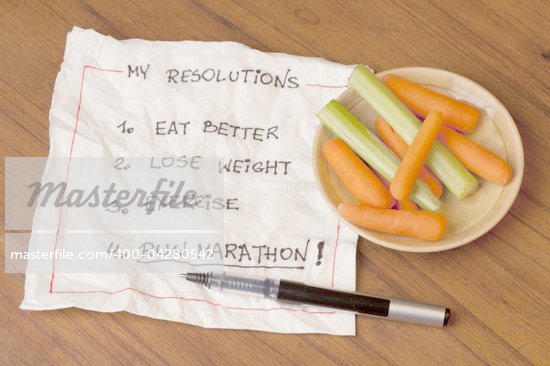 MY RESOLUTIONS
1. EAT BETTER
2. LOSE WEIGHT
3. EXERCISE
4. RUN MARATHON!
Masterfile
400-04280542